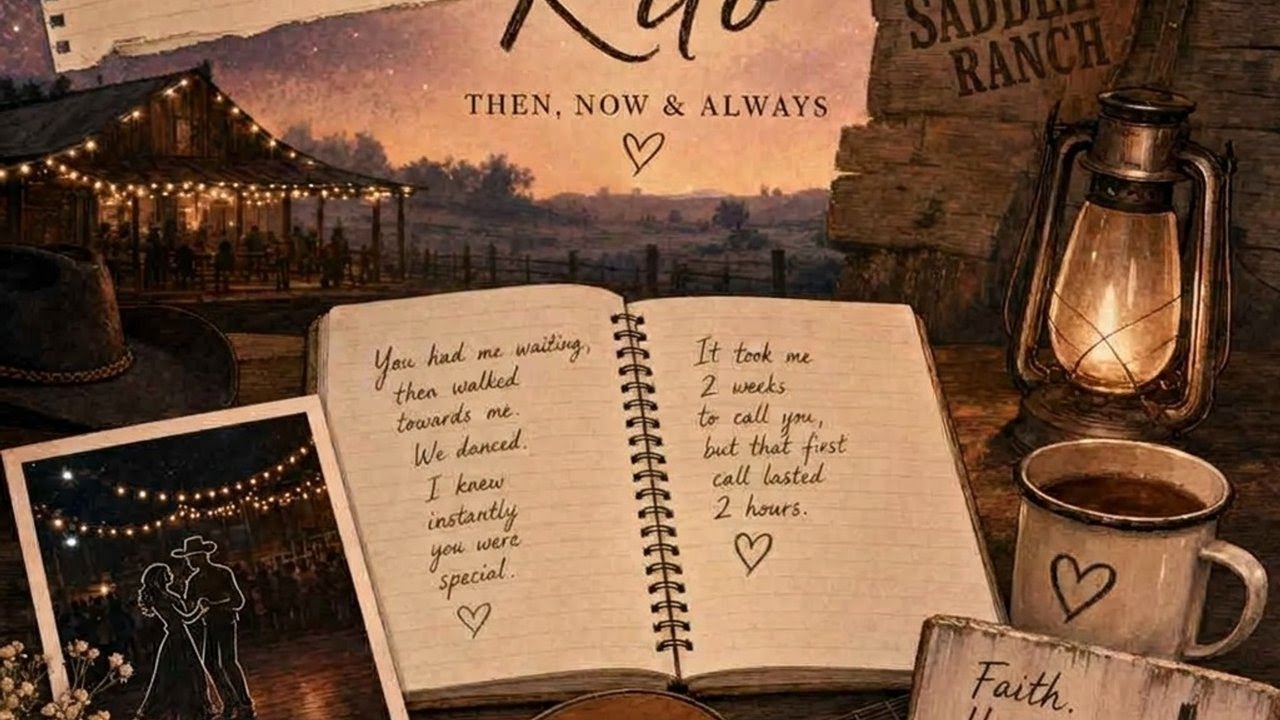 SADDLE
RANCH
THEN, NOW & ALWAYS
You had me waiting,
then walked
towards me.
We danced.
I knew
instantly
you were
special.
It took me
2 weeks
to call you,
but that first
call lasted
2 hours.
Faith.